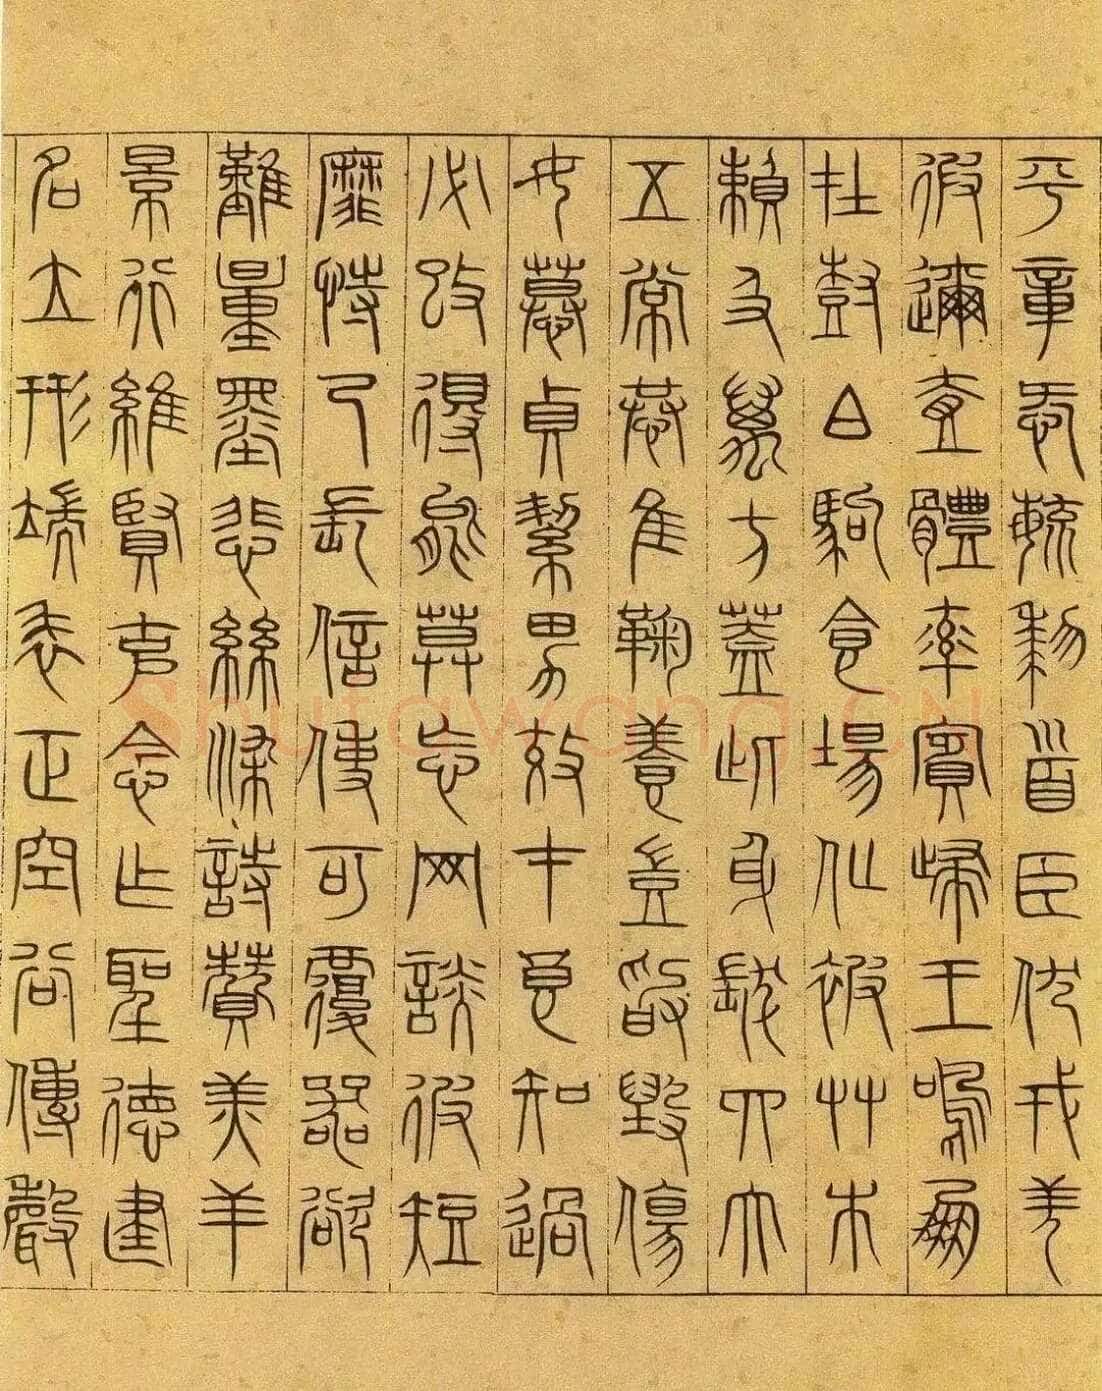 平章愛育黎首臣伏戎羌
遐邇壹體率賓歸王鳴鳳
在樹白駒食場化被艸木
賴及萬方蓋此身髮四大
五常恭惟鞠養豈敢毀傷
女慕貞絜男效才良知過
必改得能莫忘罔談彼短
靡恃己長信使可覆器欲
難量墨悲絲染詩贊羔羊
景行維賢克念作聖德建
名立形端表正空谷傳聲
Shufawang.CN